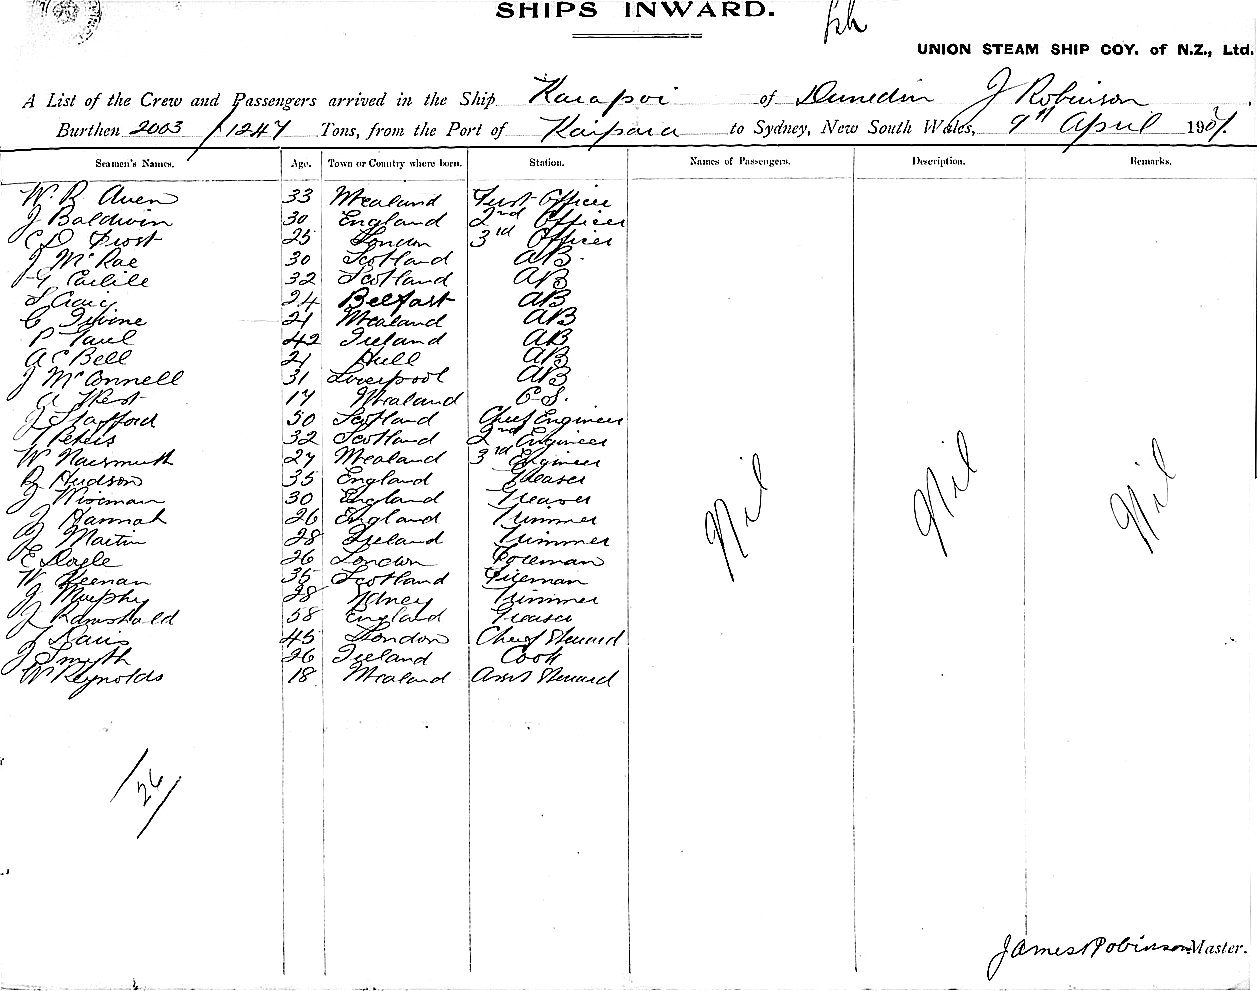 SHIPS INWARD.
UNION STEAM SHIP COY. of N.Z., Ltd.
A List of the Crew and Passengers arrived in the Ship Kaiapoi of Dunedin J Robinson
Burthen 2003/1247 Tons, from the Port of Kaipara to Sydney, New South Wales, 9th April 1907.
Seamen's Names. Age. Town or Country where born. Station. Names of Passengers. Description. Remarks.
33 N Zealand First Officer
J Baldwin 30 England 2nd Officer
C D Frost 25 London 3rd Officer
J McRae 30 Scotland AB.
Carlile 32 Scotland AB
S Craig 24 Belfast AB
C Irvine 21 N Zealand AB
P Paul 42 Ireland AB
A C Bell 21 Hull AB
J McConnell 31 Liverpool AB
A West 17 N Zealand O.S.
J Stafford 50 Scotland Chief Engineer
J Peters 32 Scotland 2nd Engineer
W Naesmith 27 N Zealand 3rd Engineer
Hudson 35 England Greaser
J Wiseman 30 England Greaser
J Hannah 26 England Trimmer
J Martin 28 Ireland Trimmer
E Doyle 26 London Foreman
W Keenan 35 Scotland Fireman
J Murphy 28 Trimmer
J 58 England Greaser
J Davis 45 London Chief Steward
J Smyth 26 Ireland Cook
W Reynolds 18 N Zealand Asst Steward
Nil Nil Nil
/26/
James Robinson Master.